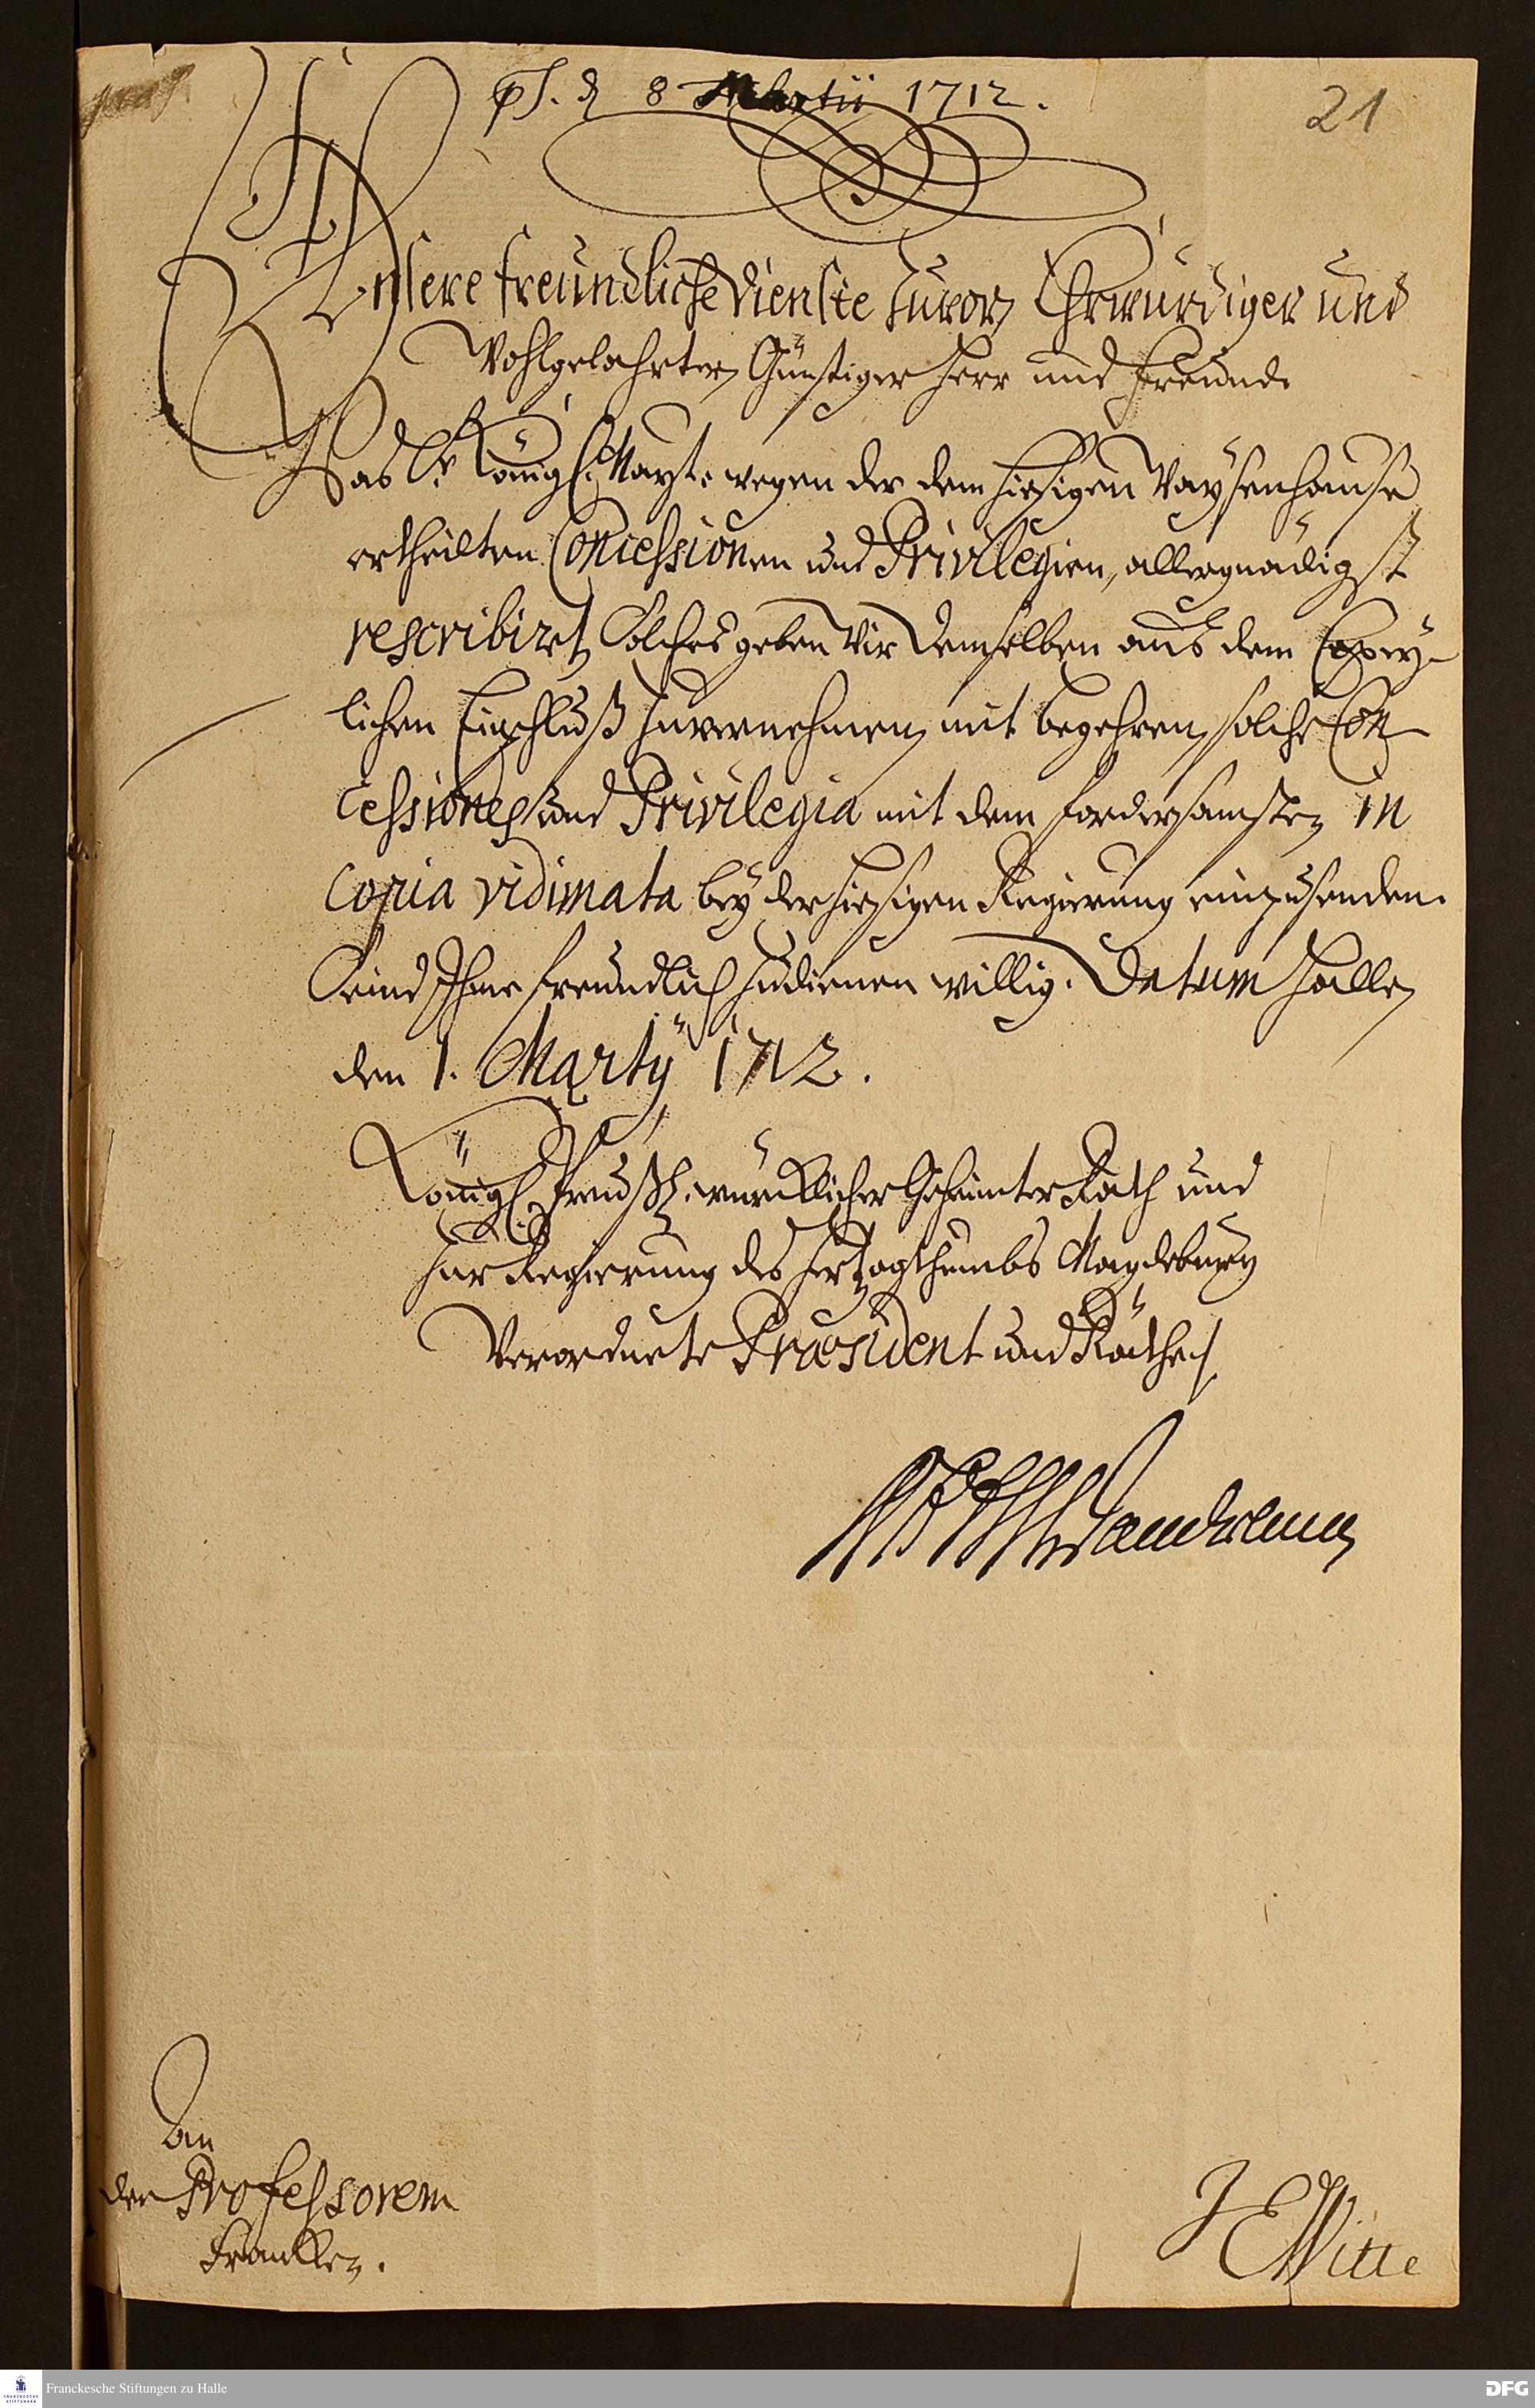 ps. d 8 Martii 1712.
21
Unsere freundliche Dienste zuvor, Ehrwürdiger und
Wohlgelahrter, Günstiger Herr und Freund.
Was Sr. Königl. Mayt. wegen der dem hiesigen Waysenhause
ertheilten Concessionen und Privilegien, allergnädigst
rescribiret, Solches geben Wir Demselben aus dem Copey-
lichen Einschluß zuvernehmen, mit begehren, solche Con-
cessiones und Privilegia mit dem fordersamsten in
Copia vidimata bey der hiesigen Regierung einzusenden.
Seind Ihme freundlich zudienen willig. Datum Halle,
den 1. Martÿ 1712.
Königl. Preußl. würcklicher Geheimter Rath und
zur Regierung des Hertzogthumbs Magdeburg
Verordnete Præsident und Räthe
Danckelman
An
den Professorem
Francken.
JEWitte
Franckesche Stiftungen zu Halle
FRANCKESCHE
STIFTUNGEN
DFG